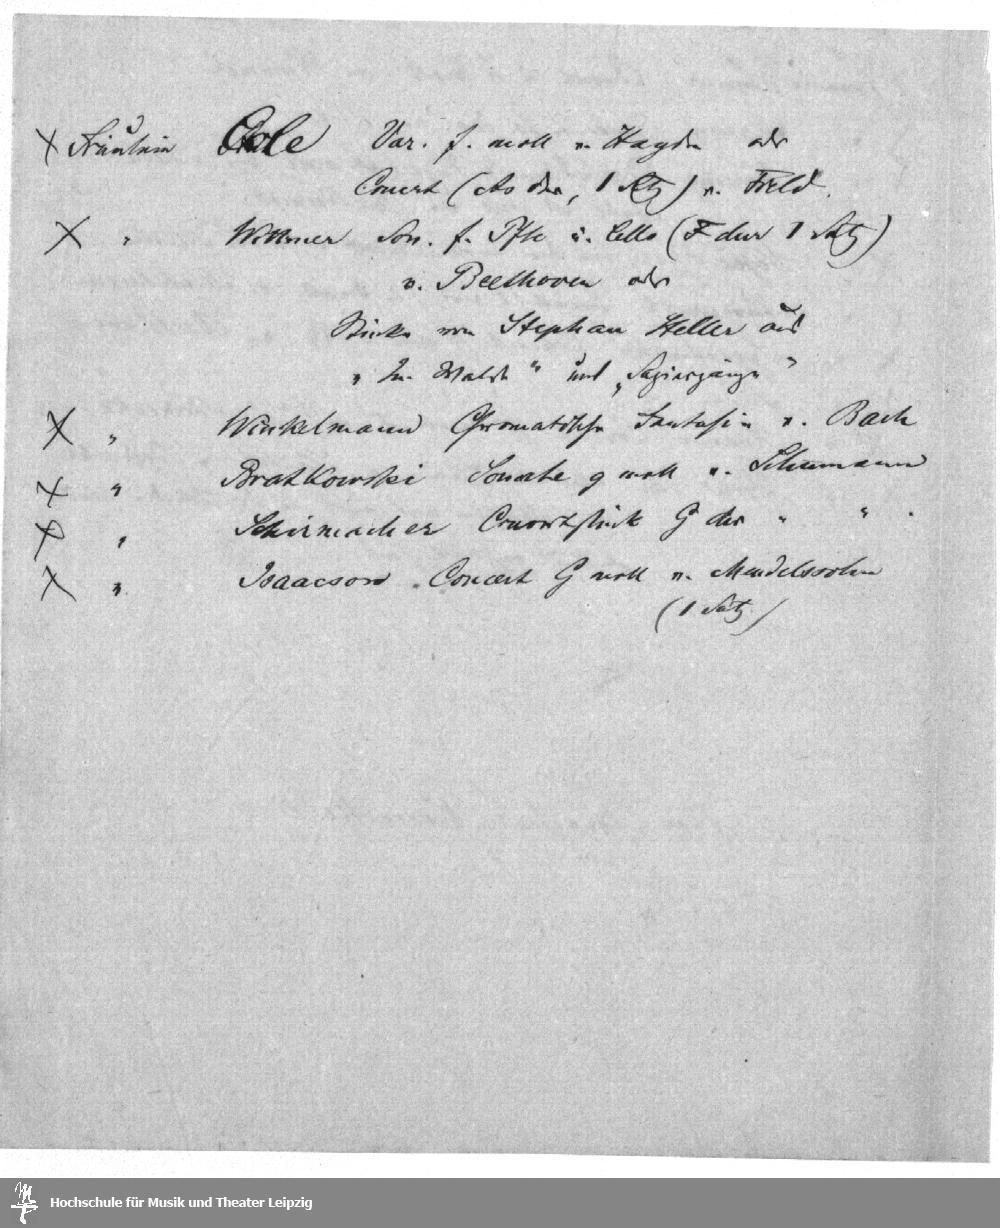 × Fräulein Cole Var. f. moll v. Haydn oder
Concert (As dur, 1 Satz) v. Field.
× " Wittmer Son. f. Pfte u. Cello (F dur 1 Satz)
v. Beethoven oder
Stücke von Stephan Heller aus
„Im Walde“ und „Spaziergänge“
× " Winkelmann Chromatische Fantasie v. Bach
× " Bratkowski Sonate g moll v. Schumann
× " Schirmacher Concertstück G dur " " .
× " Isaacson Concert G moll v. Mendelssohn
(1 Satz)
Hochschule für Musik und Theater Leipzig